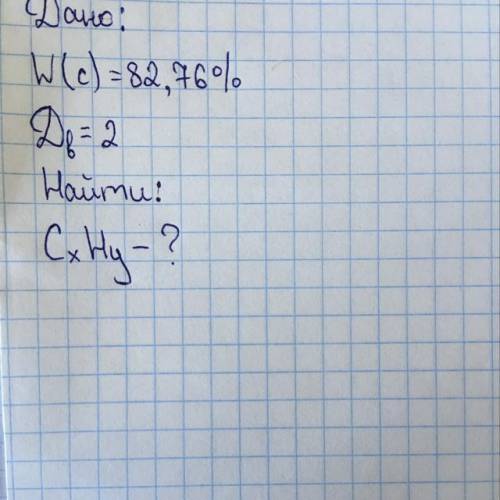 Дано:
W(c)=82,76%
Дв=2
Найти:
CxHy-?